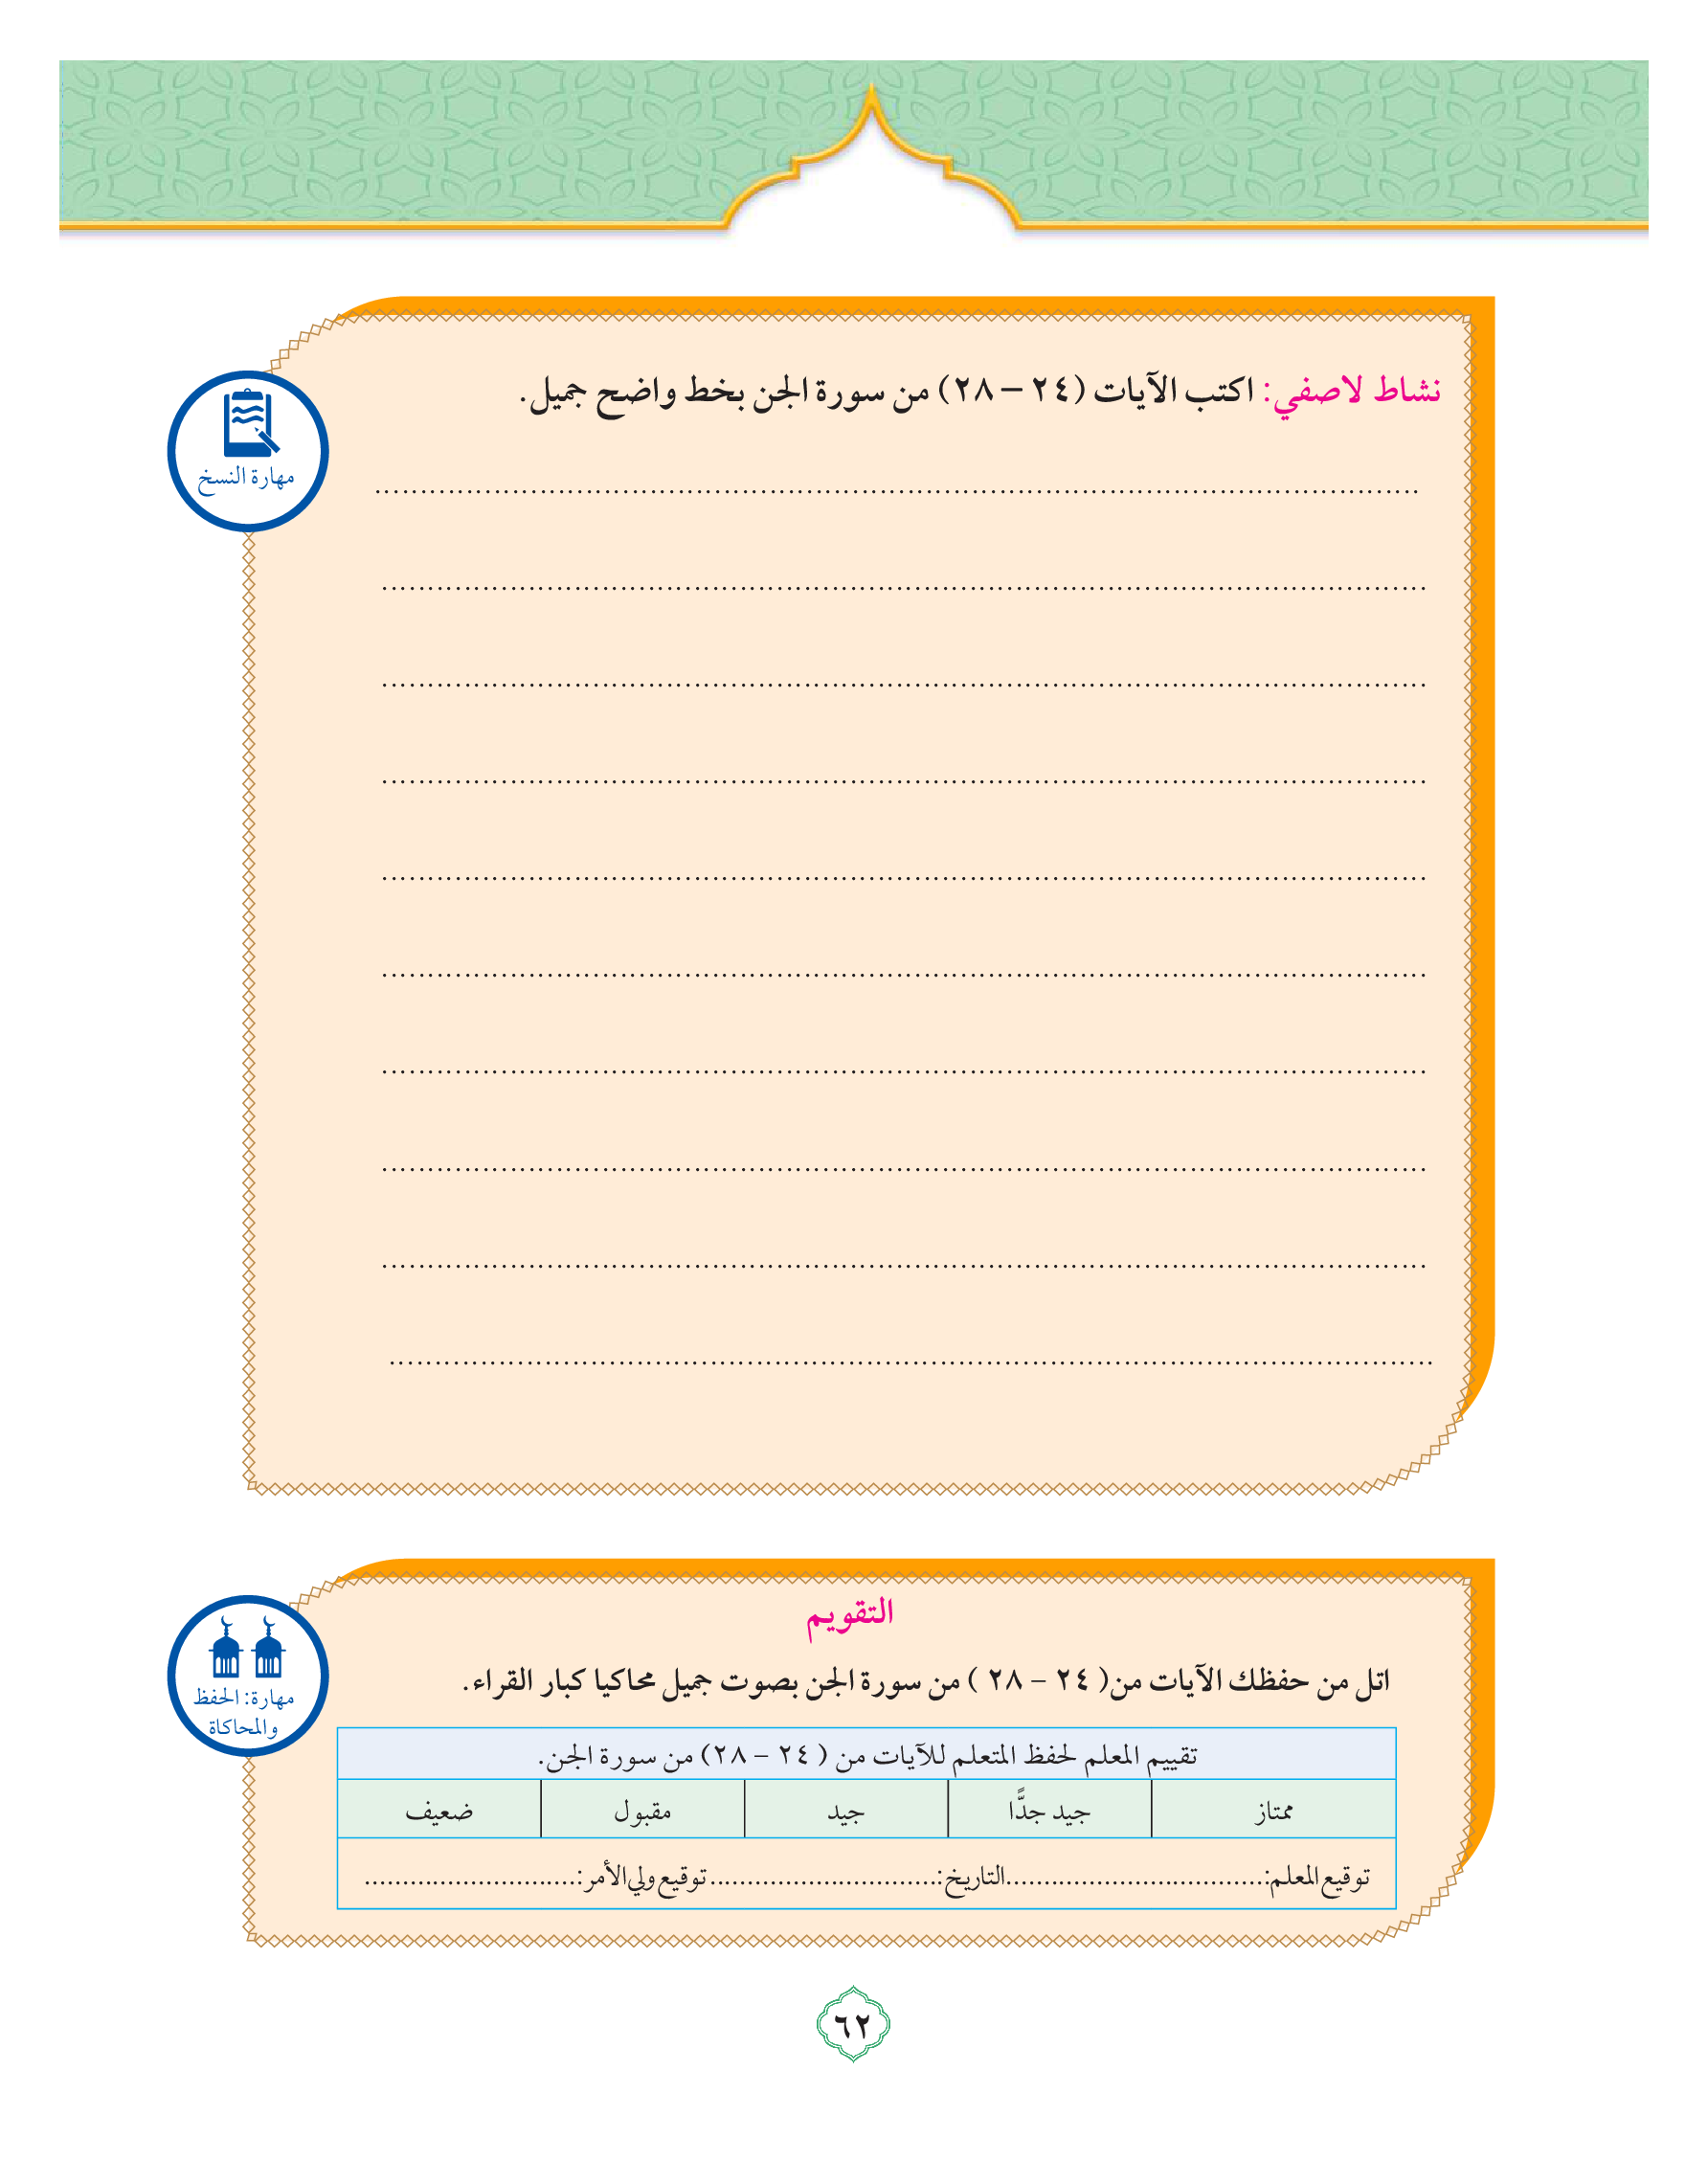 نشاط لاصفي: اكتب الآيات (٢٤ – ٢٨) من سورة الجن بخط واضح جميل.
مهارة النسخ
التقويم
اتل من حفظك الآيات من( ٢٤ – ٢٨ ) من سورة الجن بصوت جميل محاكيا كبار القراء.
مهارة: الحفظ
والمحاكاة
تقييم المعلم لحفظ المتعلم للآيات من ( ٢٤ – ٢٨) من سورة الجن.
ممتاز جيد جدًّا جيد مقبول ضعيف
توقيع المعلم:..................................التاريخ:..............................توقيع ولي الأمر:............................
٦٢